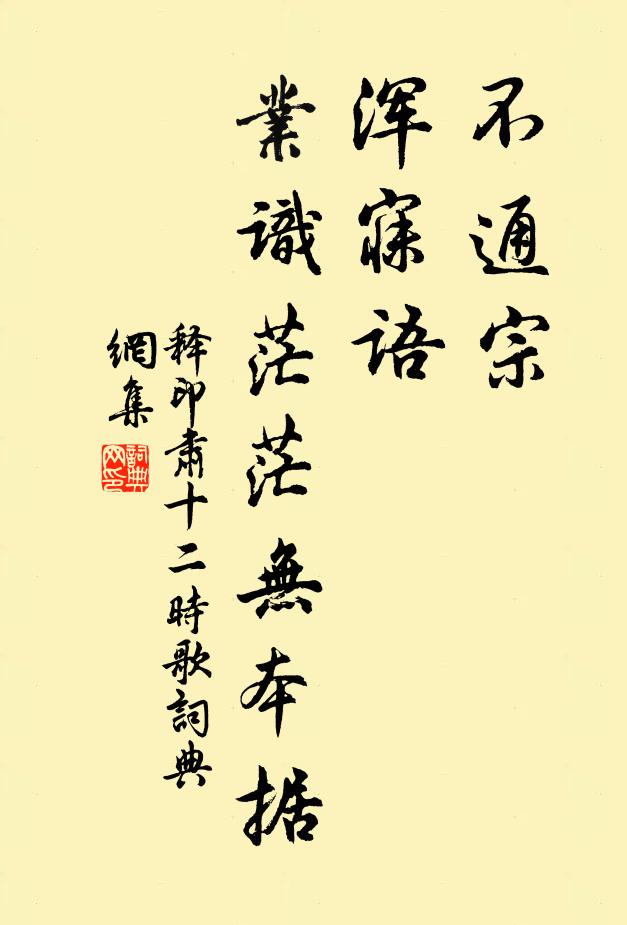 不通宗
浑寐语
業識茫茫無本据
释印肃十二時歌詞典
網集
詞典网印